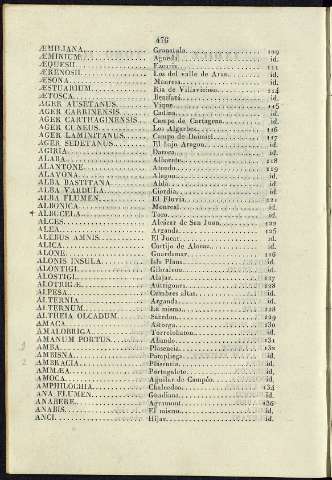 476
ÆMILIANA. Graanula. 109
ÆMINIUM. Agueda id.
ÆQUESII. 111
ÆRENOSII. Los del valle de Aran. id.
ÆSONA. Manresa. id.
ÆSTUARIUM. Ria de Villaviciosa. 114
ÆTOSCA. Benifazá id.
AGER AUSETANUS. Vique 115
AGER CARBINENSIS. id.
AGER CARTHAGINENSIS Campo de Cartagena. id.
AGER CUNEUS. Los Algarbes. 116
AGER LAMINITANUS. Campo de Daimiel. 117
AGER SEDETANUS. El bajo Aragon. id.
AGIRIA. Daroca. id.
ALABA. Albacete. 118
ALANTONE. 119
ALAVONA. Alagon. id.
ALBA BASTITANA Abla id.
ALBA VARDULA Ciordia. id.
ALBA FLUMEN. El Fluvia. 121
ALBONICA Monreal. id.
+ ALBUCELA Toro id.
ALCES. Alcázar de San Juan. 122
ALEA. Arganda. 125
ALEBUS AMNIS. El Jucar. id.
ALICA. Cortijo de id.
ALONE. Guardamar. 126
ALONIS INSULA. Isla Plana. id.
ALONTIGI. Gibraleon. id.
ALOSTIGI. Alajar. 127
ALOTRIGÆ Autrigones. 128
ALPESA. id.
ALTERNIA Arganda. id.
ALTERNUM. La misma. 128
ALTHEIA OLCADUM. 129
AMACA Astorga. 130
AMALOBRICA. Torrelobaton. id.
AMANUM PORTUS. Abando. 131
AMBA Plasencia. 132
AMBISNA. Pampliega. id.
AMBRACIA Plasencia. id.
AMMÆA Portogalete. id.
AMOCA. Aguilar de Campóo. id.
AMPHILOCHIA 134
ANA FLUMEN. Guadiana. id.
ANABERE Agramont 136
ANABIS. El mismo. id.
ANCI. Hijar. id.